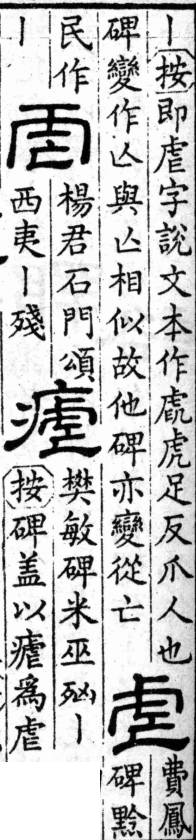 丨按即虐字說文本作虐虎足反爪人也
碑變作亾與亾相似故他碑亦變從亡
虐
費鳳
碑黔
民作
丨
虐
楊君石門頌
西夷丨殘
瘧
樊敏碑米巫𣧑丨
按碑盖以瘧爲虐